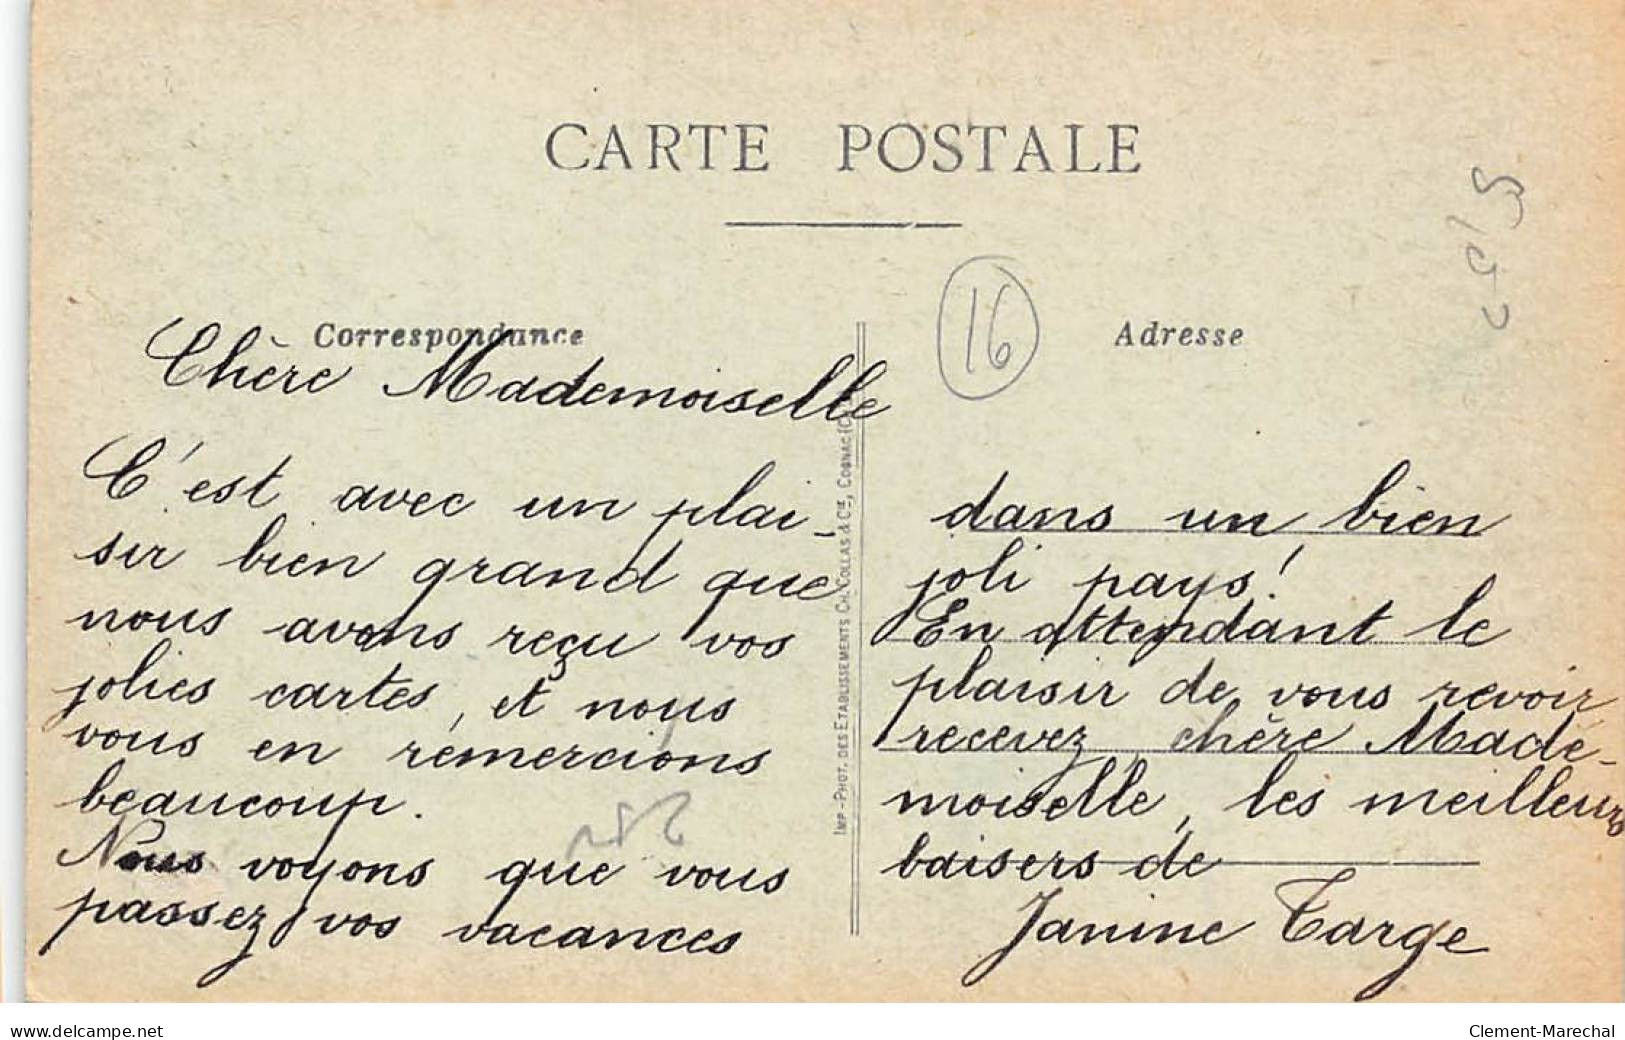 CARTE POSTALE
Correspondance
Adresse
16
Chère Mademoiselle
C'est avec un plai-
sir bien grand que
nous avons reçu vos
jolies cartes, et nous
vous en remercions
beaucoup.
Nous voyons que vous
passez vos vacances
IMP-PHOT. DES ETABLISSEMENTS CH. COLLAS & CIE, COGNAC
dans un bien
joli pays!
En attendant le
plaisir de vous revoir
recevez chère Made-
moiselle, les meilleurs
baisers de
Janine Targe
www.delcampe.net
Clement-Marechal